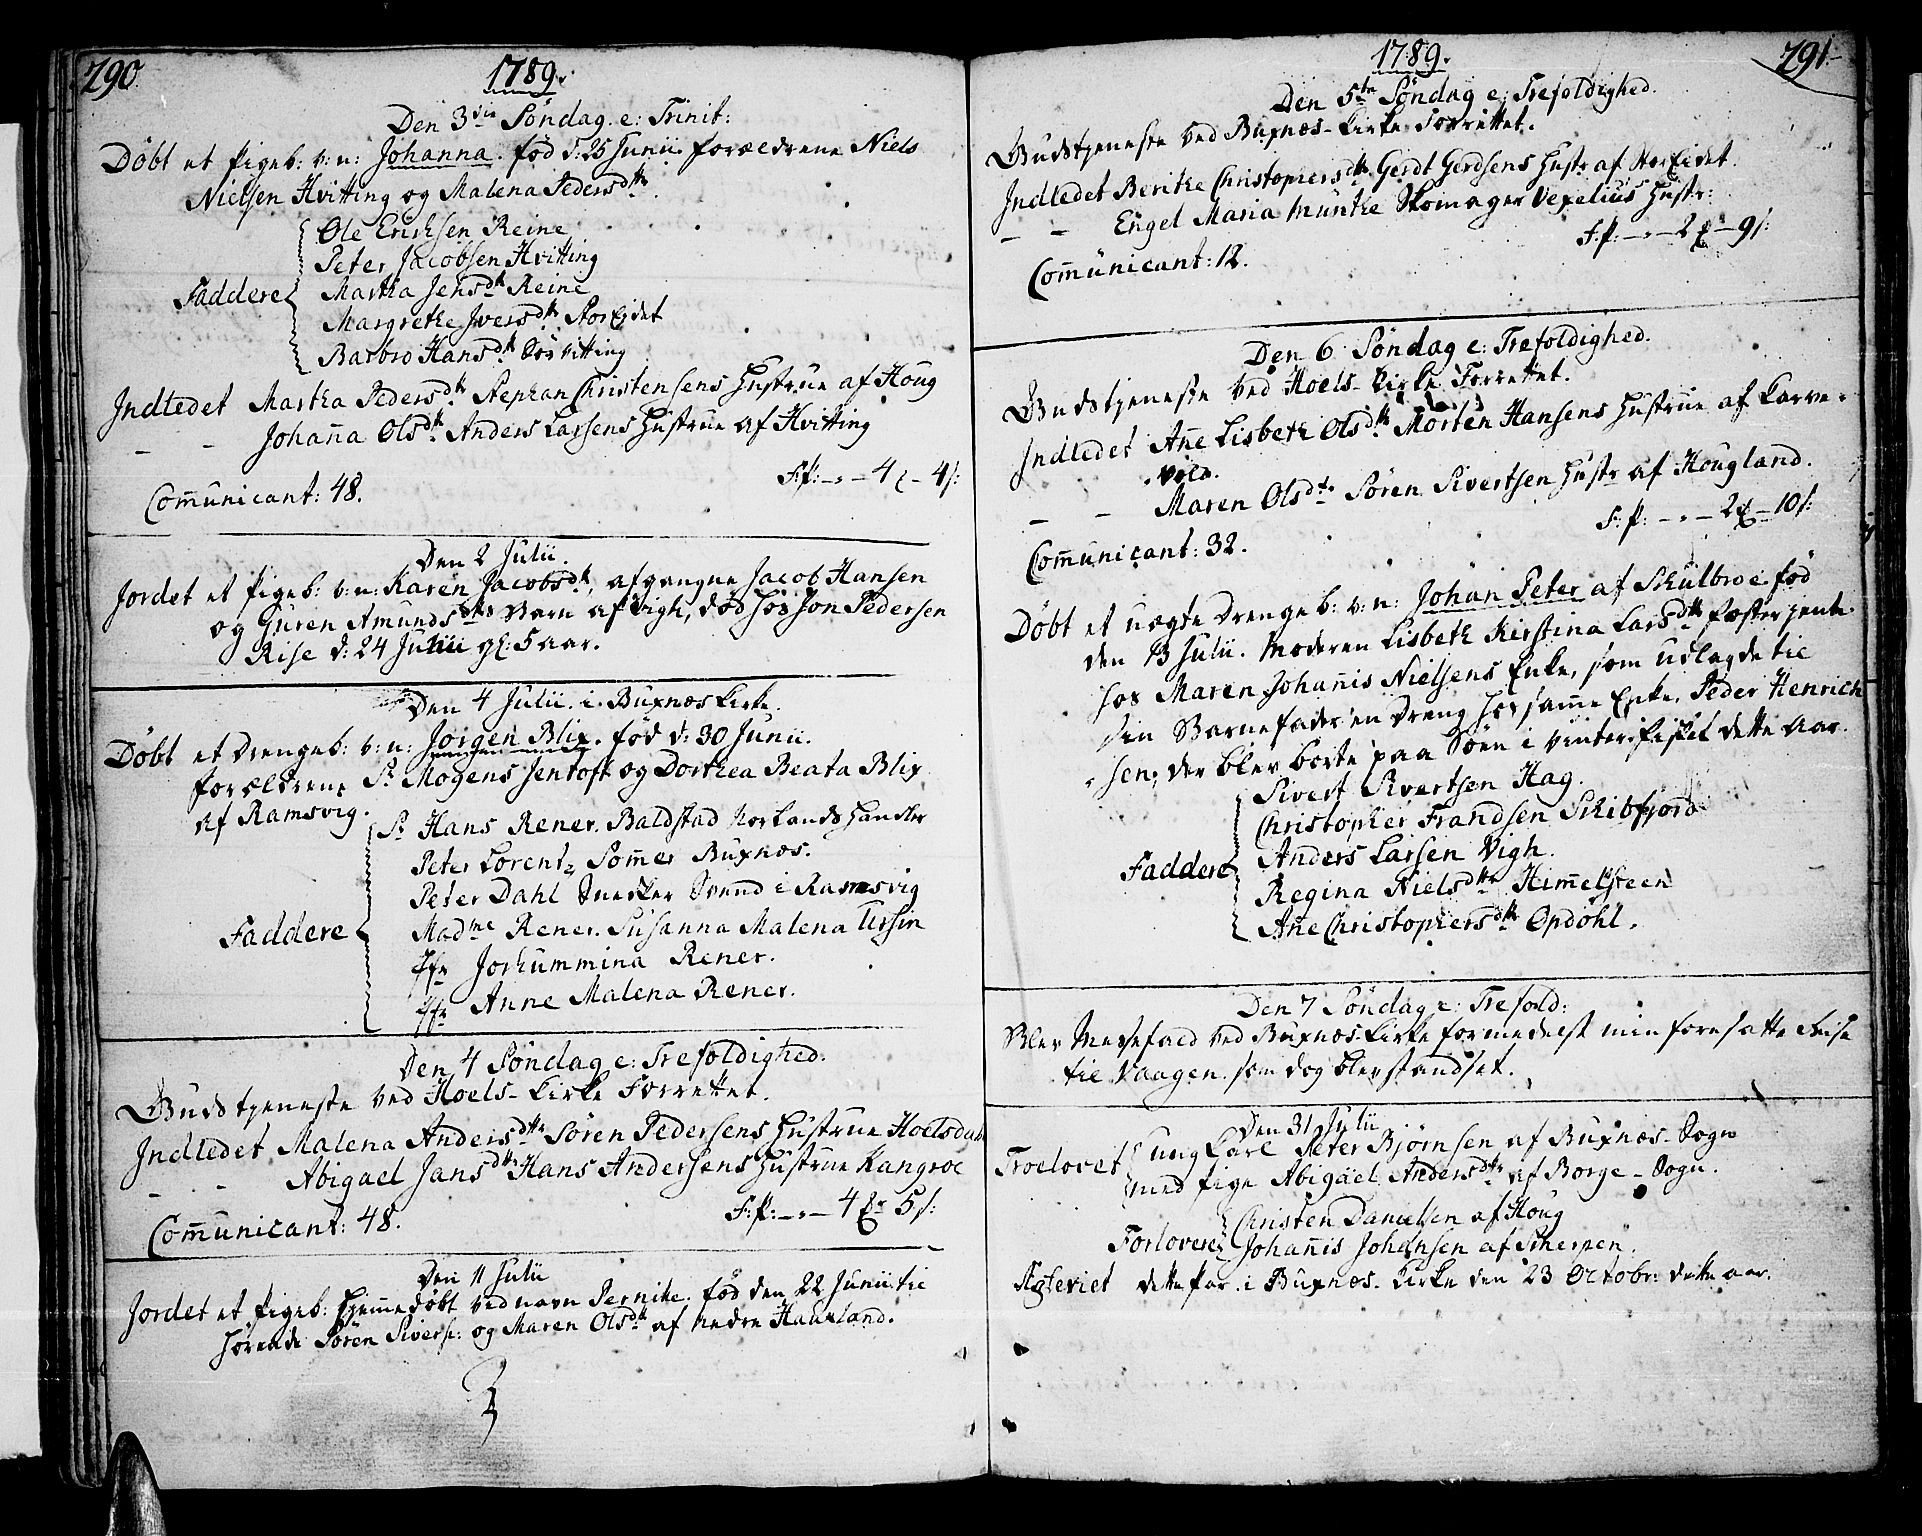 290.
1789.
Den 3die Söndag. e: Trinit:
Döbt et Pigeb: v: n: Johanna. föd d: 25 Junii. Forældrene Niels
Nielsen Hvitting og Malena Pedersdtr.
Ole Erichsen Reine
Peter Jacobsen Hvitting
Faddere Martha Jensdtr Reine
Margrethe Iversdtr StorEidet
Barbro Hansdtr Hvitting
Indledet Martha Pedersdtr Stephan Christensens Hustrue af Houg
- - Johanna Olsdtr Anders Larsens Hustrue af Hvitting
F:P: - „ - 4 - 4 s:
Communicant: 48.
Den 2 Julii.
Jordet et Pigeb: v: n: Karen Jacobsdtr, afgangne Jacob Hansen
og Guren Amundsdtrs Barn af Vigh, död hos Jon Pedersen
Rise d: 24 Junii gl: 5 aar.
Den 4 Julii. i Buxnæs Kirke.
Döbt et Drengeb: v: n: Jörgen Blix. föd d: 30 Junii.
Forældrene Sr Mogens Jentoft og Dorthea Beata Blix
af Ramsvig.
Sr Hans Rener. Baldstad Norlandshandler
Peter Lorentz Sommer Buxnæs.
Peter Dahl Snedker Svend i Ramsvig
Faddere Madme Rener. Susanna Malena Ursin
Jfr Jorhummina Rener.
Jfr Anne Malena Rener.
Den 4 Söndag e: Trefoldighed.
Gudstjeneste ved Hoels-Kirke Forrettet.
Indledet Malena Andersdtr Sören Pedersens Hustrue Hoelsdahl
- - Abigael Jansdtr Hans Andersens Hustrue Kangroe
F:P: - „ - 4 - 5 s:
Communicant: 48.
Den 11 Julii
Jordet et Pigeb: Hjemmedöbt ved navn Pernike. föd den 22 Junii. til
hörende Sören Siversn: og Maren Olsdtr af Nedre Haukland.
291.
1789.
Den 5te Söndag e: Trefoldighed.
Gudstjeneste ved Buxnæs-Kirke Forrettet.
Indledet Berithe Christophersdtr Gerdt Gerdsens Hustr af StorEidet.
- - Engel Maria Munthe Skomager Vexelius Hustr:
F:P: - „ - 2 - 9 s:
Communicant: 12.
Den 6 Söndag e: Trefoldighed.
Gudstjeneste ved Hoels-Kirke Forrettet.
Indledet Anne Lisbeth Olsdtr Morten Hansens Hustrue af Farve-
vold.
- - Maren Olsdtr Sören Sivertsen Hustr af Hougland.
F:P: - „ - 2 - 10 s:
Communicant: 32.
Döbt et uægte Drengeb: v: n: Johan Peter af Schulbroe föd
den 13 Julii. Moderen Lisbeth Kirstina Larsdtr Fosterjente
hos Maren Johannis Nielsens Enke, som udlagde til
sin Barnefader en Dreng hos samme Enke, Peder Henrich-
sen; der blev borte paa Söen i Vinterfisket dette Aar.
Sivert Sivertsen Hag.
Christopher Frandsen Schibfjord
Faddere Anders Larsen Vigh.
Regina Nielsdtr Himmelsteen
Ane Christophersdtr Opdöhl.
Den 7 Söndag e: Trefold:
Blev Messefald ved Buxnæs-Kirke formedelst min foresatte Reise
til Vaagen. som dog blev standset.
Den 31 Julii
Troelovet Ung Carl Peter Björnsen af Buxnæs-Sogn
med Pige Abigäel Andersdtr af Borge-Sogn.
Forlovere Christen Danielsen af Houg
Johannis Johansen af Scherpen.
Ægteviet dette Par. i Buxnæs-Kirke den 23 Octobr: dette aar.